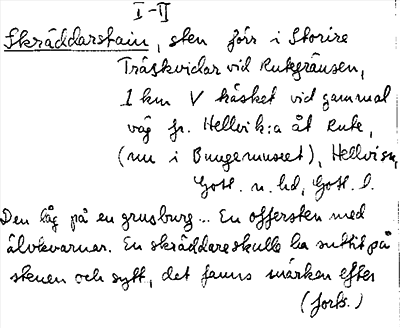 I-II
Skräddarstain, sten förr i Storire
Träskvidar vid Rutegränsen,
1 km V käsket vid gammal
väg fr. Hellvi k:a åt Rute,
(nu i Bungemuseet), Hellvi sn,
Gotl. n. hd, Gotl. l.
Den låg på en grusburg... En offersten med
älvkvarnar. En skräddare skulle ha suttit på
stenen och sytt, det fanns märken efter
(forts.)